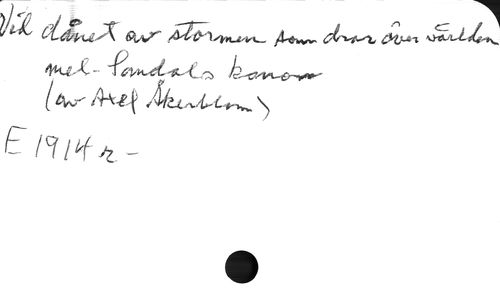 Vid dånet av stormen som drar över världen
mel. Sandals
(av Axel Åkerblom)
E 1914 r -